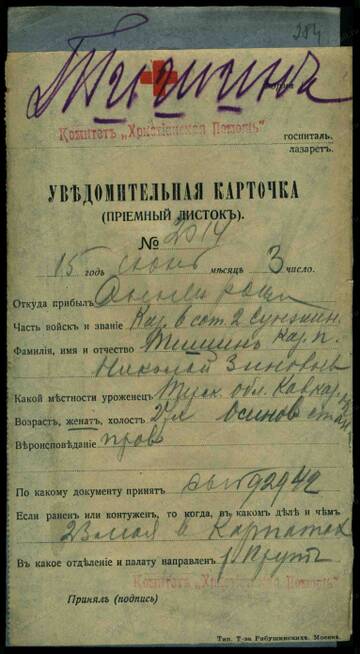 284
Тишинъ
Комитетъ „Христіанская Помощь"
госпиталь.
лазаретъ.
УВѢДОМИТЕЛЬНАЯ КАРТОЧКА
(ПРІЕМНЫЙ ЛИСТОКЪ).
№ 2014
15 годъ іюнь мѣсяцъ 3 число.
Откуда прибылъ
Часть войскъ и званіе Каз. 6 сот. 2 Сунжин.
Фамилія, имя и отчество Тишинъ каз. п.
Николай Зиновьев
Какой мѣстности уроженецъ обл. Кавказ.
Возрастъ, женатъ, холостъ 24 л Осинов
Вѣроисповѣданіе прав
По какому документу принятъ 92942
Если раненъ или контуженъ, то когда, въ какомъ дѣлѣ и чѣмъ
23 мая в Карпатах
Въ какое отдѣленіе и палату направленъ р. Прутъ
Комитетъ „Христіанская Помощь"
Принялъ (подпись)
Тип. Т-ва Рябушинскихъ. Москва.